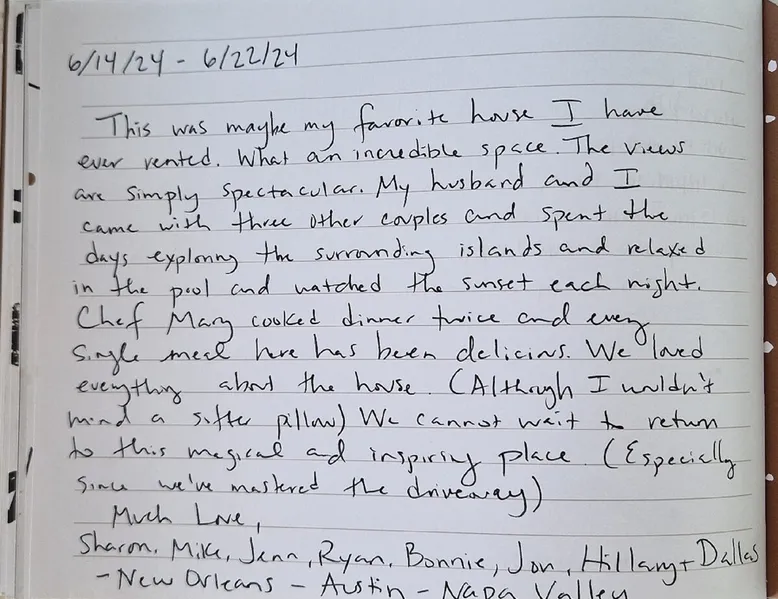 6/14/24 - 6/22/24
This was maybe my favorite house I have
ever rented. What an incredible space. The views
are simply spectacular. My husband and I
came with three other couples and spent the
days exploring the surrounding islands and relaxed
in the pool and watched the sunset each night.
Chef Mary cooked dinner twice and every
single meal here has been delicious. We loved
everything about the house. (Although I wouldn't
mind a softer pillow) We cannot wait to return
to this magical and inspiring place. (Especially
since we've mastered the driveway)
Much Love,
Sharon, Mike, Jenn, Ryan, Bonnie, Jon, Hillary + Dallas
- New Orleans - Austin - Napa Valley